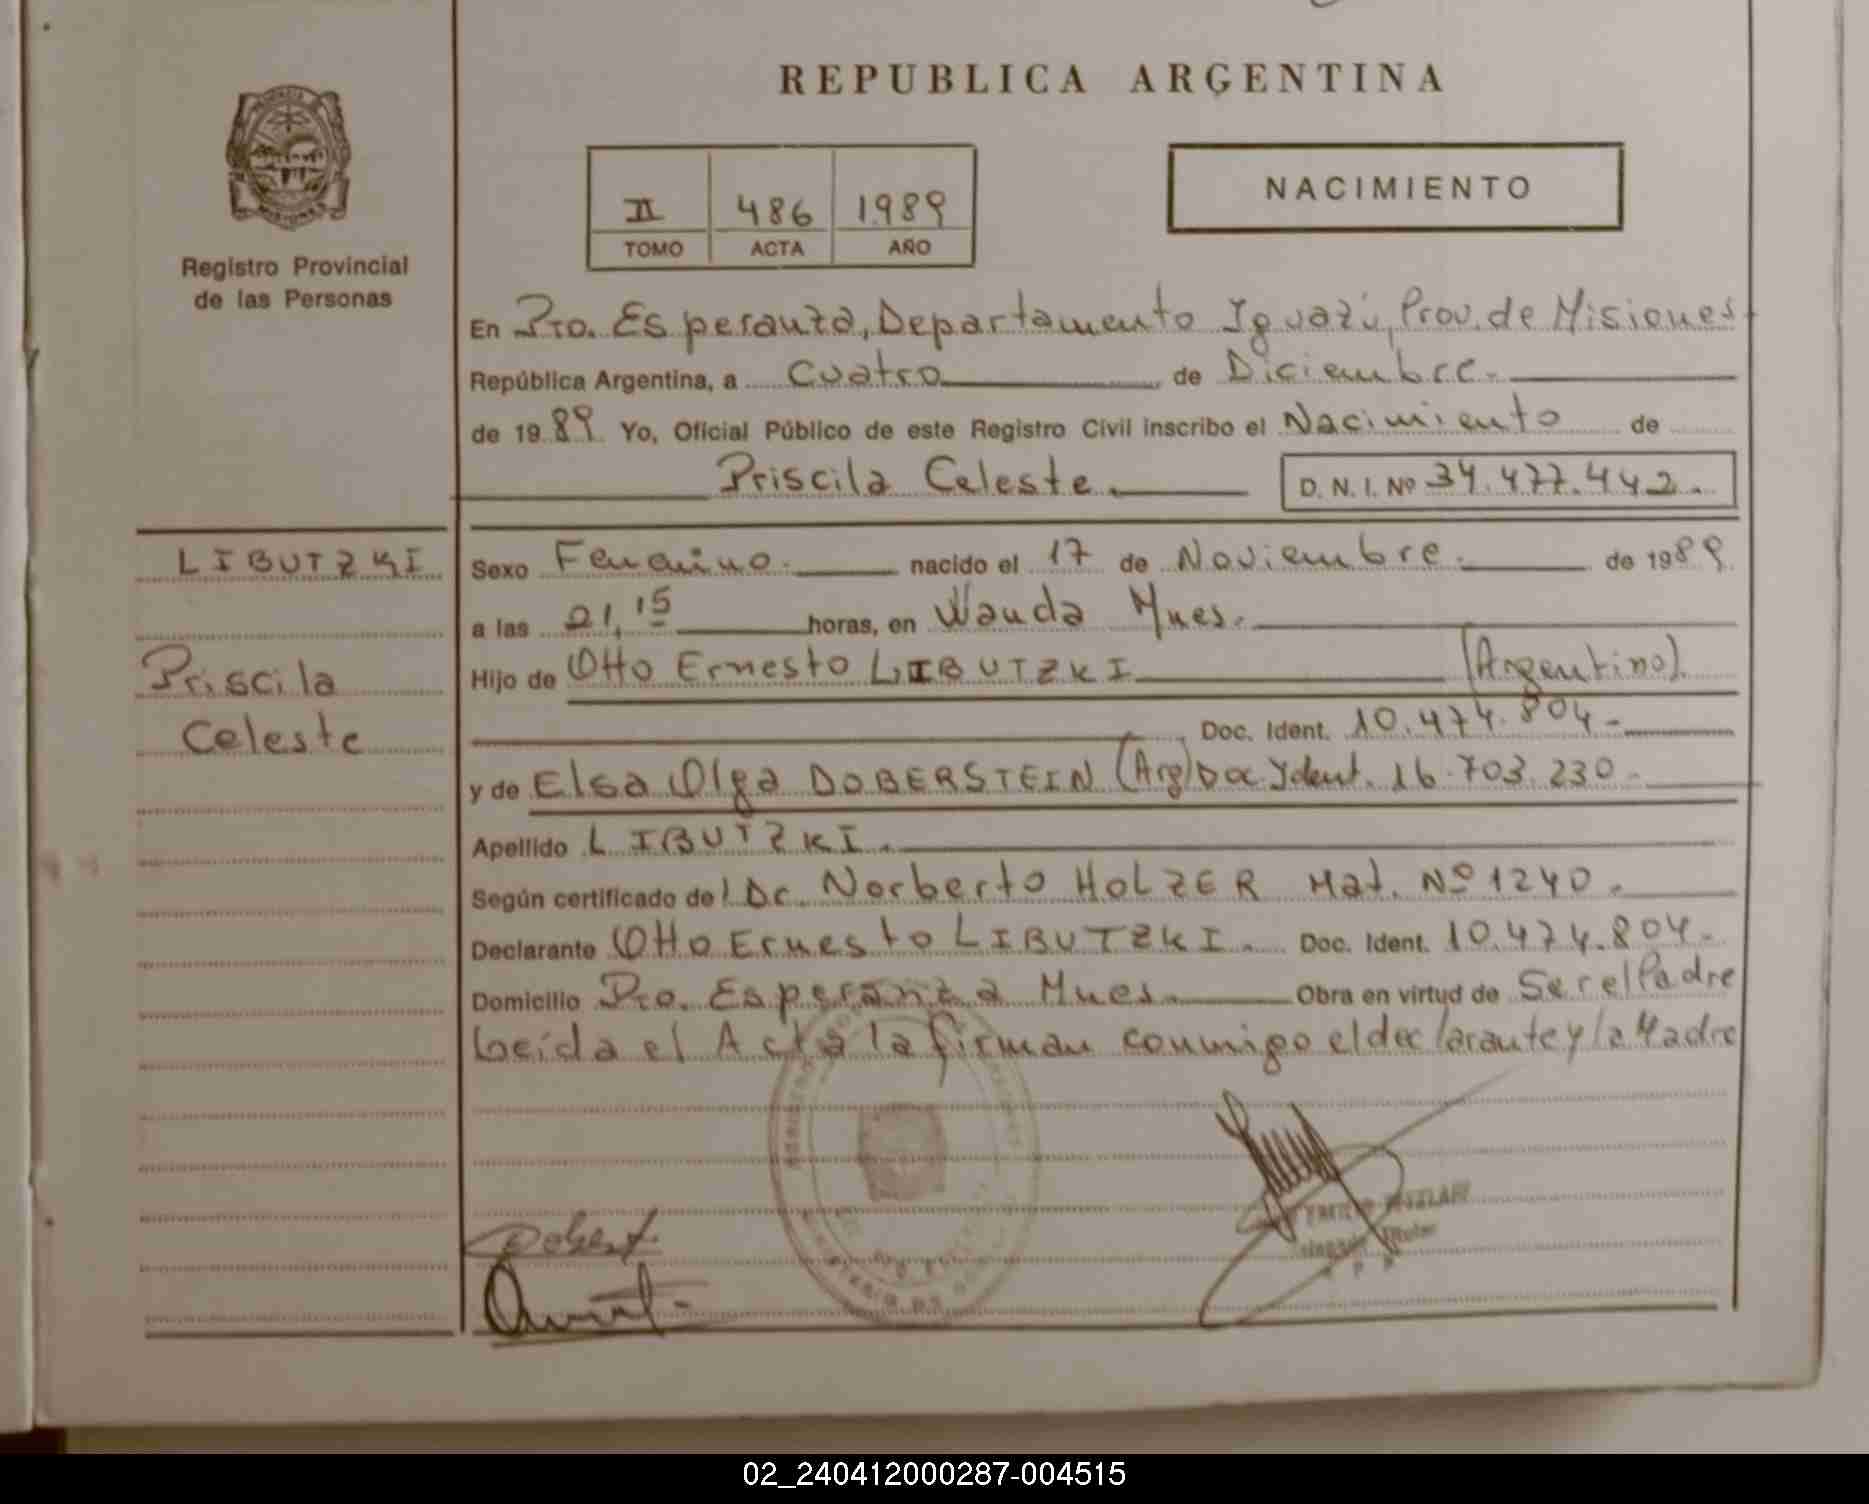 REPUBLICA ARGENTINA
Registro Provincial
de las Personas
II 486 1989
TOMO ACTA AÑO
NACIMIENTO
En Pto. Esperanza, Departamento Iguazú, Prov. de Misiones
República Argentina, a Cuatro de Diciembre.
de 1989 Yo, Oficial Público de este Registro Civil inscribo el Nacimiento de
Priscila Celeste. D. N. I. Nº 34.477.442.
LIBUTZKI
Priscila
Celeste
Sexo Femenino. nacido el 17 de Noviembre. de 1989
a las 21,15 horas, en Wanda Mnes.
Hijo de Otto Ernesto LIBUTZKI (Argentino).
Doc. Ident. 10.474.804.
y de Elsa Olga DOBERSTEIN (Arg) Doc Ident. 16.703.230.
Apellido LIBUTZKI.
Según certificado del Dr. Norberto HOLZER Mat. Nº 1240.
Declarante Otto Ernesto LIBUTZKI. Doc. Ident. 10.474.804.
Domicilio Pto. Esperanza Mnes. Obra en virtud de Ser el Padre
Leída el Acta la firman conmigo el declarante y la Madre
02_240412000287-004515